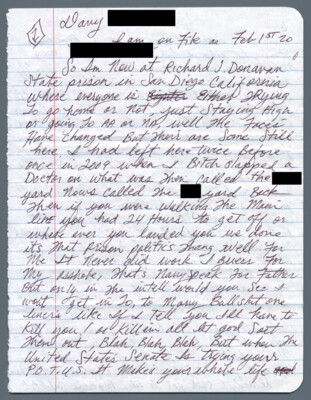 2
Dary
I am on File as Feb 1ST 20
So Am Now at Richard J. Donavan
State prison in San Diego California
where everyone is Either TRying
To go home or not, Just Staying High
or going To AA or NA, well The Faces
Have Changed But There are Some Still
here I had left here Twice Before
once in 2009 when I Bitch Slapped a
Doctor on what was Then Called The
yard Now Called The yard Back
Then if you were walking The Main
line you had 24 Hours To get off or
where ever you landed you was done
its That prison politics Thang well For
Me It Never did work I Guess For
My That's Navy Speak For Father
But only in The intell world you See I
wont get in To, To Many Bullshit one
liners like if I Tell you Ill have To
Kill you, or Kill'em all let god Sort
Them out, Blah, Blah, Blah, But when The
United States Senate Is Trying your
P.O.T.U.S. It Makes your whole life